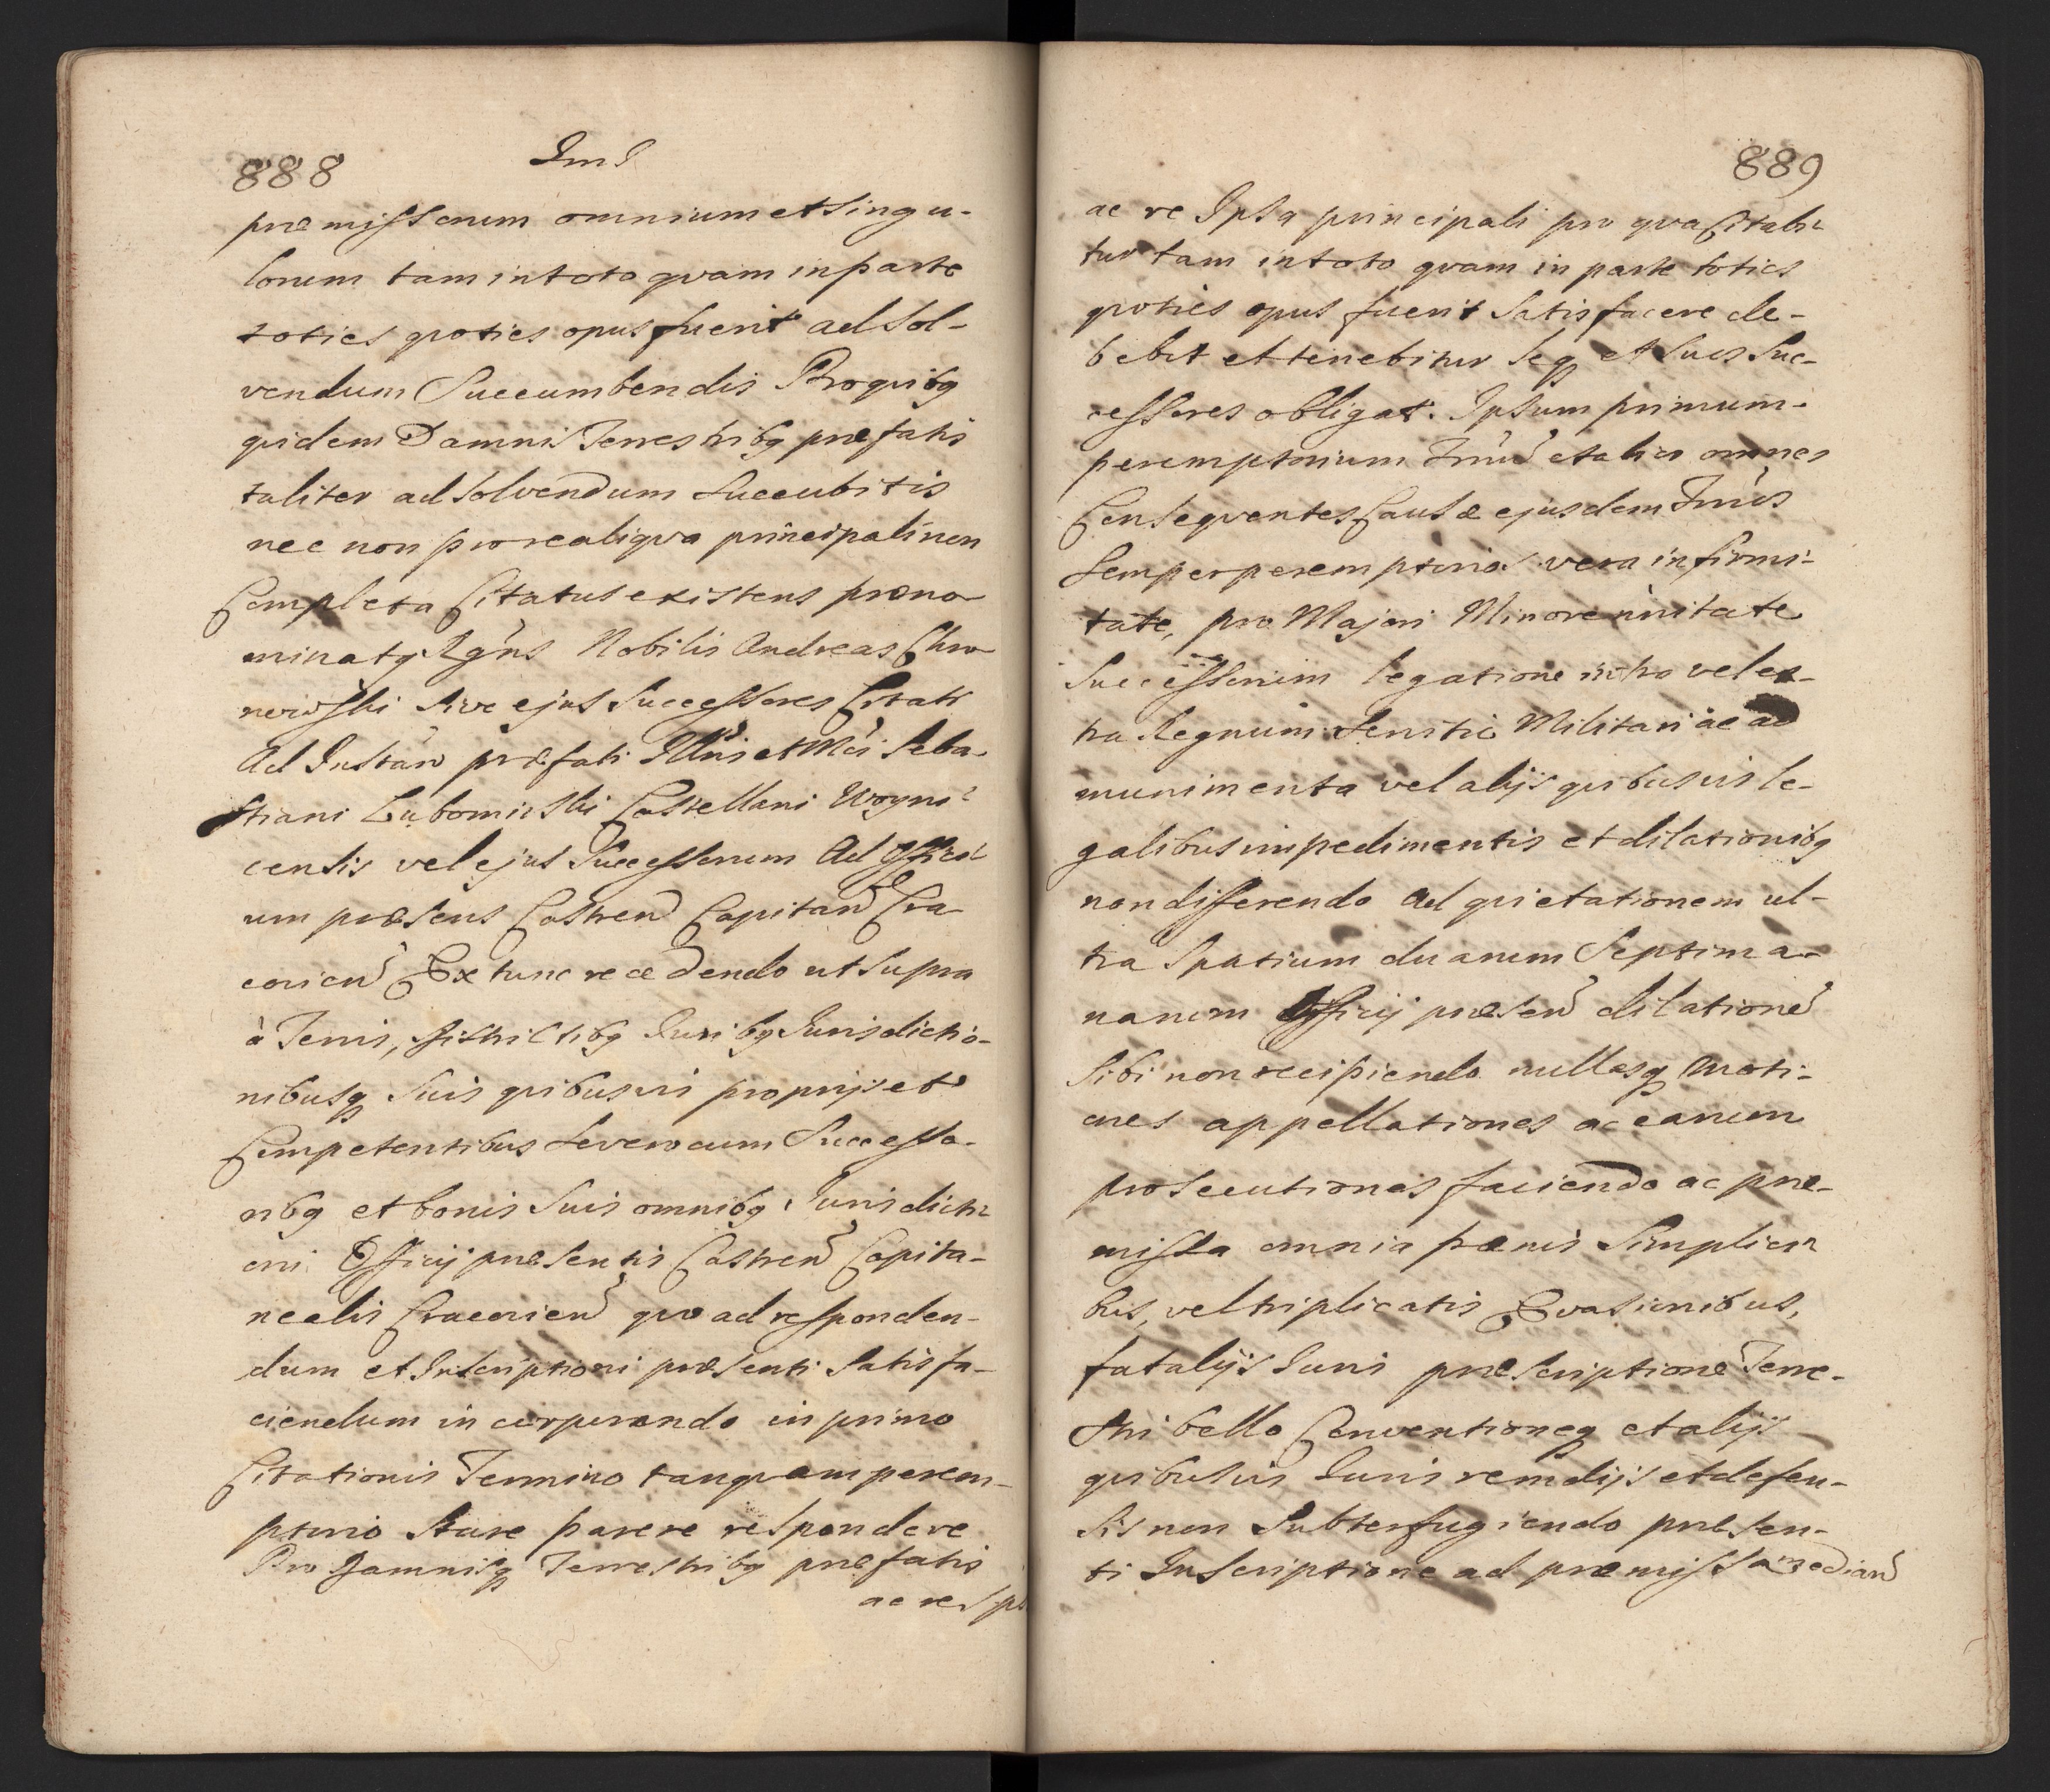 888
præmissorum omnium et singu-
lorum tam in toto qvam in parte
toties qvoties opus fuerit ad sol-
vendum Succumbendis Pro qvibq
qvidem Damnis Terrestribq præfatis
taliter ad solvendum succubitis
nec non pro re aliqva principali non
Completa Citatus existens præno-
minatq Rgńs Nobilis Andreas Chro-
nowski sive ejus Successores Citati
Ad Instań præfati Illris et Mci Seba-
stiani Lubomirski Castellani Woyni-
censis vel ejus Successorum Ad Offici-
um præsens Castren Capitan Cra-
covien Ex tunc recedendo ut supra
à Terris, Districtibq Juribq Jurisdictio-
nibusq suis qvibusvis proprijs et
Competentibus se vero cum Successo-
ribq et bonis suis omnibq Jurisdicti-
oni Officij præsentis Castren Capita-
nealis Cracovien qvo ad responden-
dum et Inscriptioni præsenti satisfa-
ciendum incorporando in primo
Citationis Termino tanqvam perem-
ptorio stare parere respondere
Pro Damnisq Terrestribq præfatis
ac re Ips
889
ac re Ipsa principali pro qva Citabi-
tur tam in toto qvam in parte toties
qvoties opus fuerit satisfacere de-
bebit et tenebitur seq et suos Suc-
cessores obligat. Ipsum primum
peremptorium Trmu et alios omnes
Conseqventes Causæ ejusdem Trnos
semper peremptorios vera infirmi-
tate, pro Majori Minorennitate
Successorum legatione intra vel ex-
tra Regnum servitio Militari ac ad
munimenta vel alijs qvibusvis le-
galibus impedimentis et dilationibq
non differendo Ad qvietationem ul-
tra spatium duarum Septima-
narum Officij præsen dilatione
sibi non recipiendo nullasq Moti-
ones appellationes ac earum
prosecutiones faciendo ac præ-
missa omnia pænis simplici-
bus, vel triplicatis Evasionibus,
fatalijs Juris præscriptione Terre-
stri bello Conventioneq et alijs
qvibusvis Juris remedijs et defen-
sis non subterfugiendo præsen-
ti Inscriptione ad præmissa median